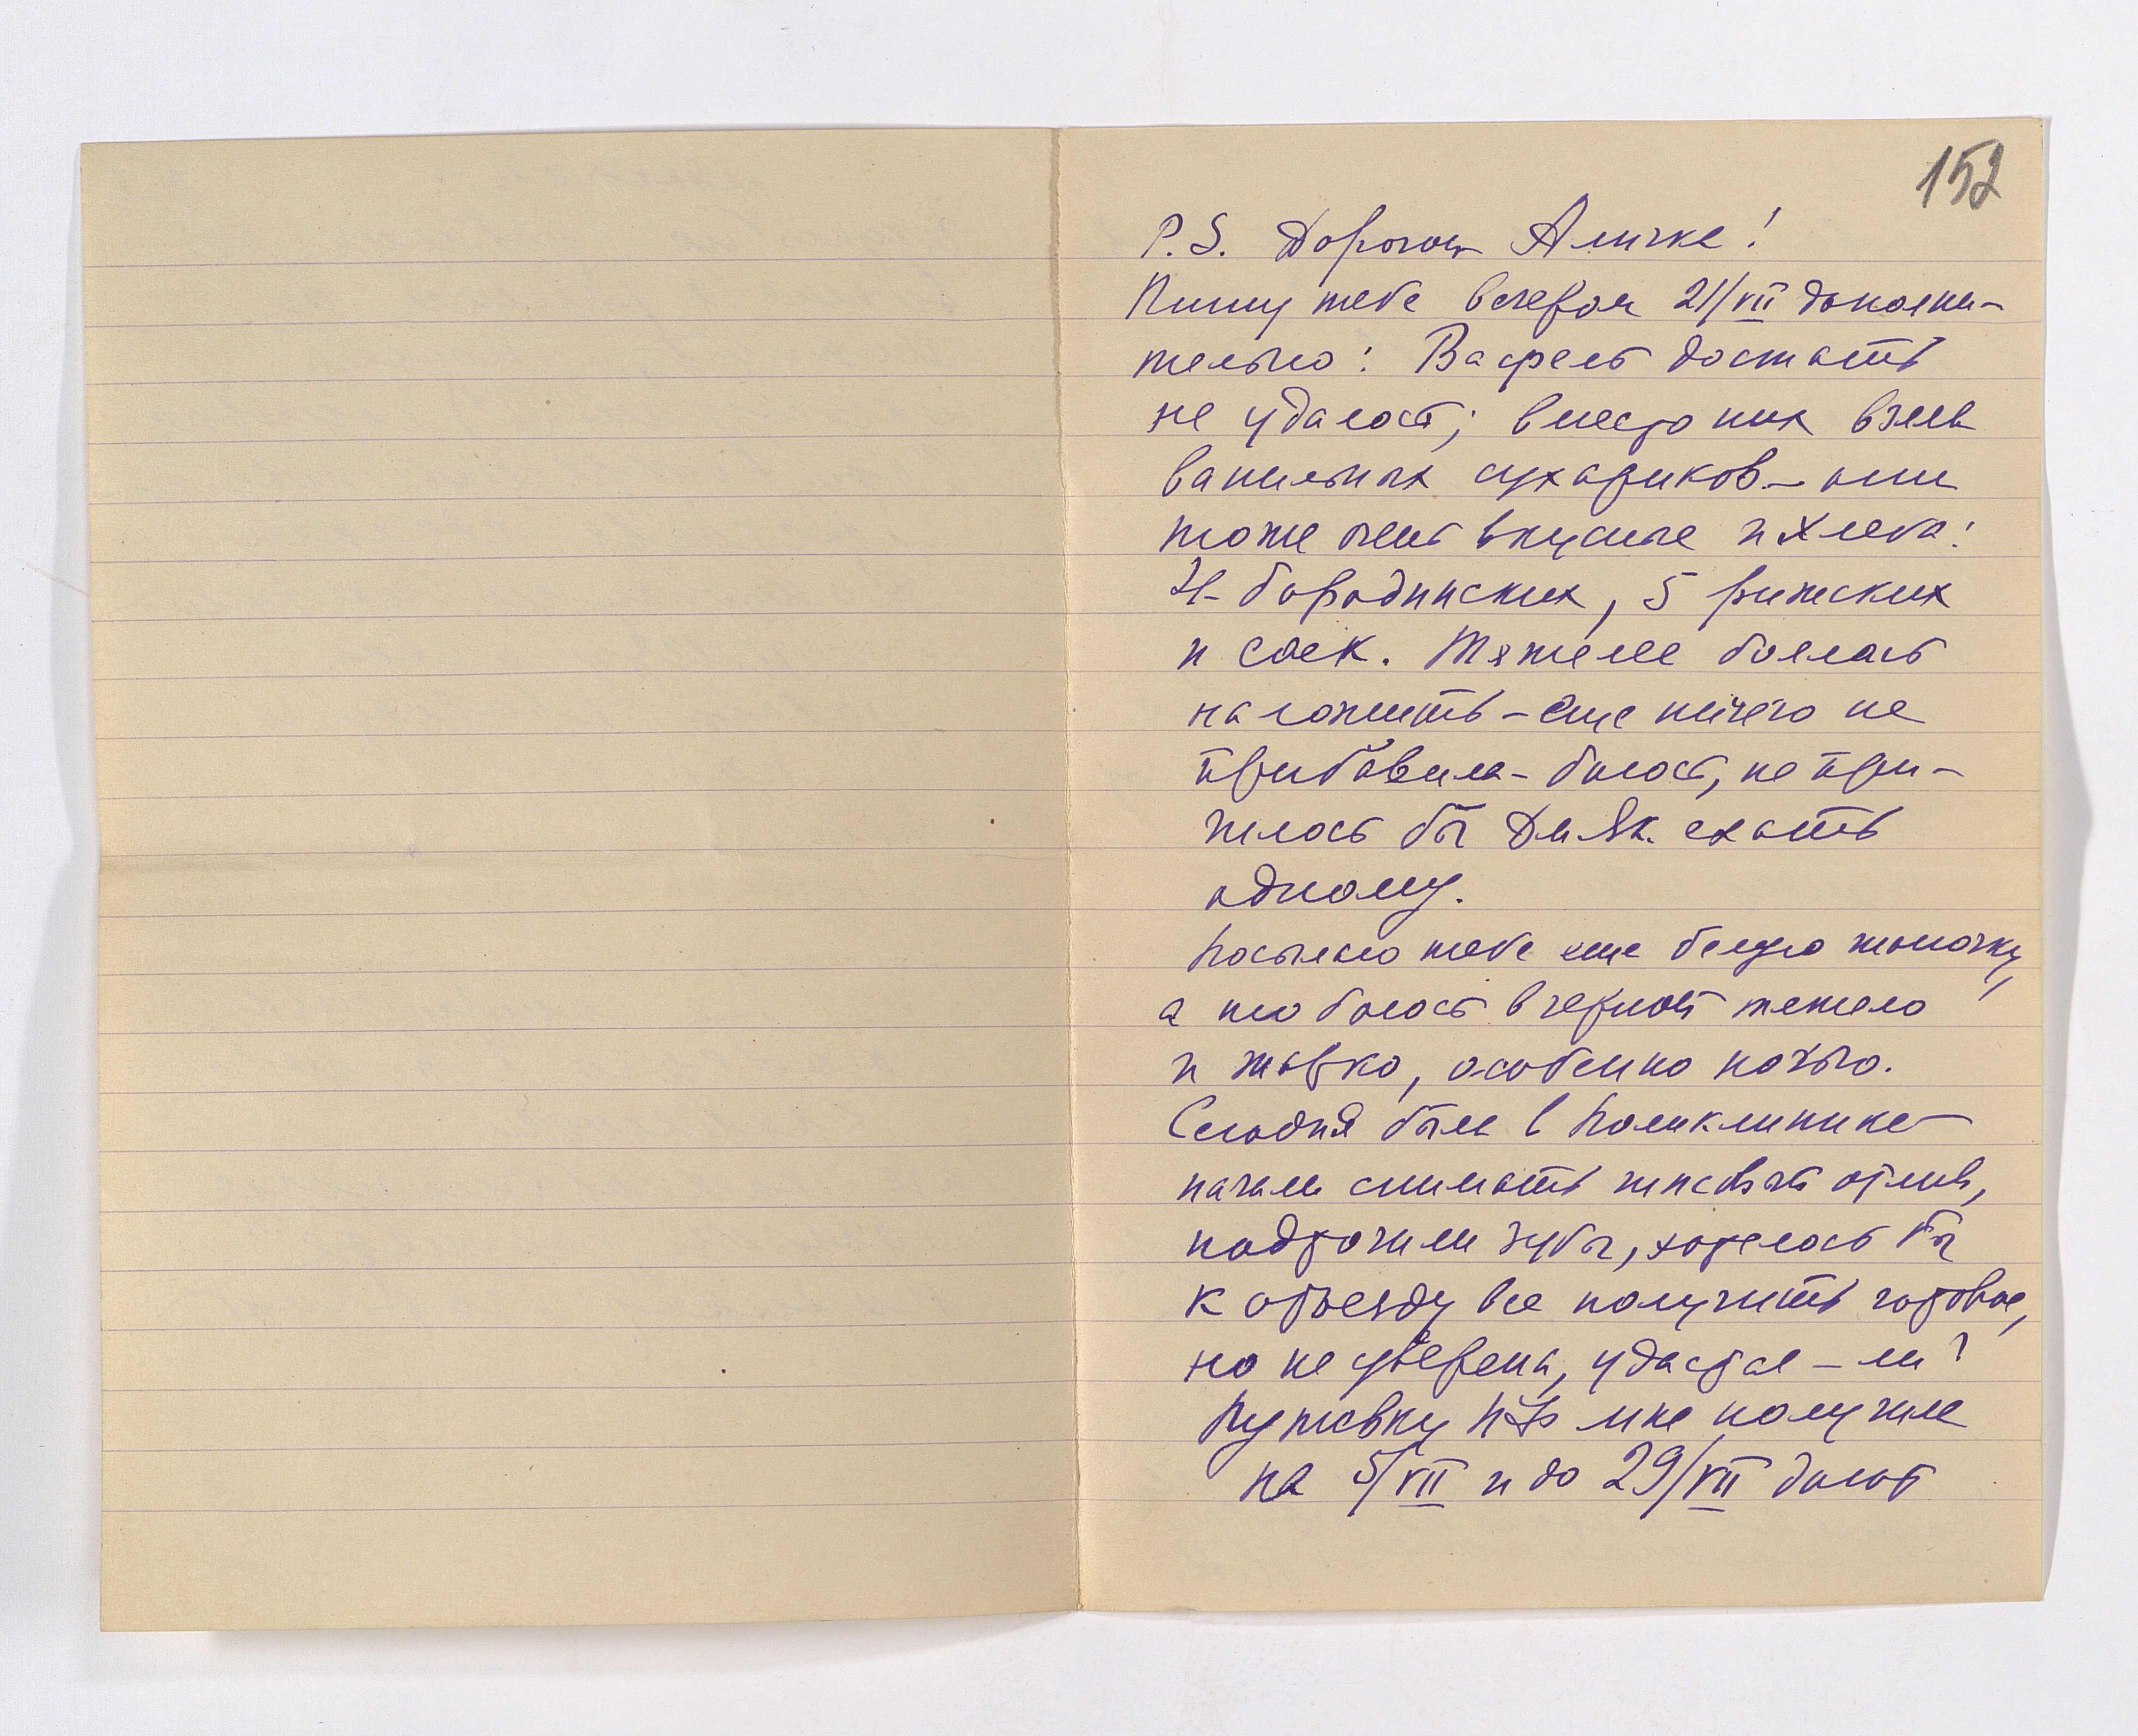 152
P.S. Дорогая Аличка!
Пишу тебе вечером 21/VII дополни-
тельно: Вафель достать
не удалось; вместо них взяла
ванильных сухариков – они
тоже очень вкусные и хлеба:
4 – бородинских, 5 рижских
и саек. Тяжелее боялась
наложить – еще ничего не
прибавила – боюсь, не при-
шлось бы Дм Як. ехать
одному.
Посылаю тебе еще белую шапочку,
а то боюсь в черной тяжело
и жарко, особенно ночью.
Сегодня была в поликлинике –
начали снимать гипсовый отлив,
подточили зубы, хотелось бы
к отъезду все получить готовое,
но не уверена, удастся – ли?
Путевку мне получила
на 5/VII и до 29/VII дают